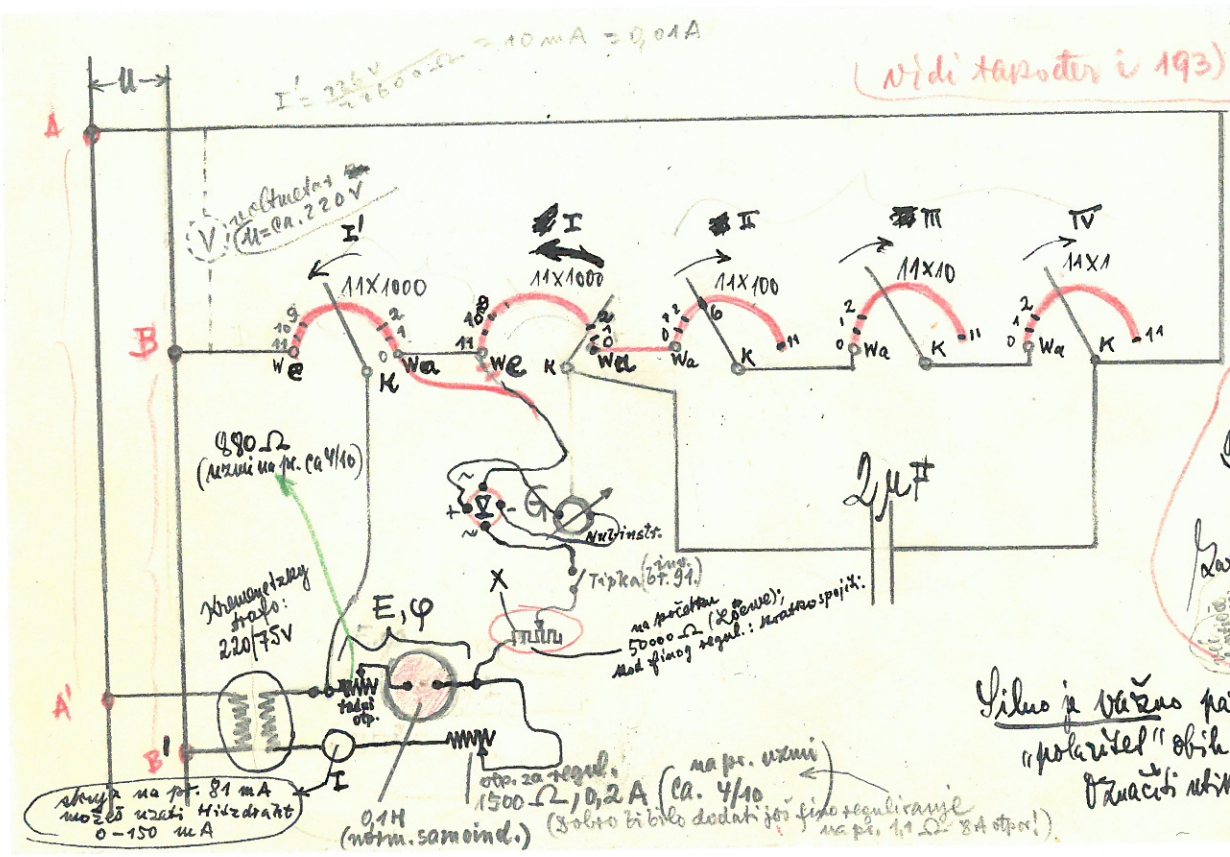 I' = 236 V = 10 mA = 0,01A
(vidi također i 193)
U
A
V
voltmetar
U = ca. 220 V
I'
11X1000
9
10
11
2
1
0
We
K
Wa
I
11X1000
9
10
11
2
1
0
We
K
Wa
II
11X100
0
1
2
6
11
Wa
K
III
11X10
0
1
2
11
Wa
K
IV
11X1
0
1
2
11
Wa
K
B
880 Ω
(uzmi na pr. ca 4/10)
2 μF
~
+
V
-
~
G
Nulinstr.
Tipka (inv. br. 91.)
X
na početku
50000 Ω (Loewe);
kod finog regul.: kratko spojiti.
Kremenetzky
trafo:
220/75V
E, φ
A'
B'
otp.
I
struja na pr. 81 mA
možeš uzeti Hitzdraht
0-150 mA
0,1H
(norm. samoind.)
otp. za regul.
1500 Ω, 0,2 A (na pr. uzmi
ca. 4/10)
(Dobro bi bilo dodati još fino reguliranje
na pr. 1,1 Ω 8A otpor!)
Silno je važno
"polaritet" obih
Označiti